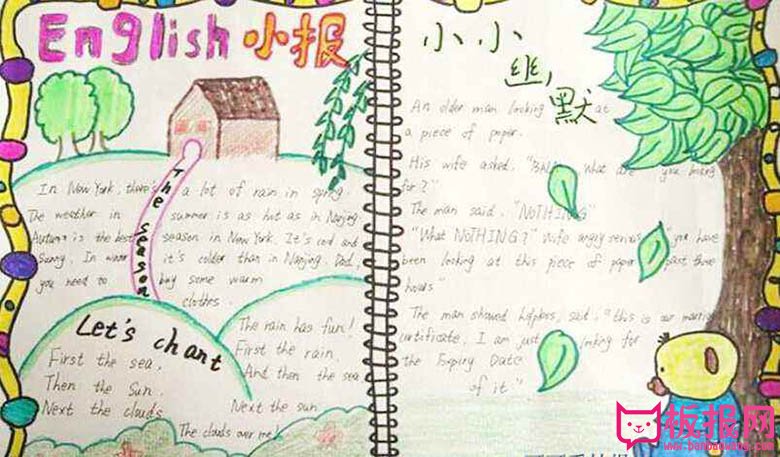 English 小报
The season
In New York, there's a lot of rain in spring.
The weather in summer is as hot as in Nanjing.
Autumn is the best season in New York. It's cool and
Sunny. In winter it's colder than in Nanjing. Dad,
you need to buy some warm
clothes.
Let's chant
First the sea,
Then the Sun.
Next the clouds
The rain has fun!
First the rain,
And then the sea
Next the sun
The clouds over me!
小小幽默
An older man looking at
a piece of paper.
His wife asked, " What are you looking
for?"
The man said, "NoTHING"
"What NoTHING?" Wife angry serious you have
been looking at this piece of paper past three
hours"
The man showed helpless, said, "this is our
certificate, I am just looking for
the Expiry Date
of it"
板报网
www.banbaowang.com